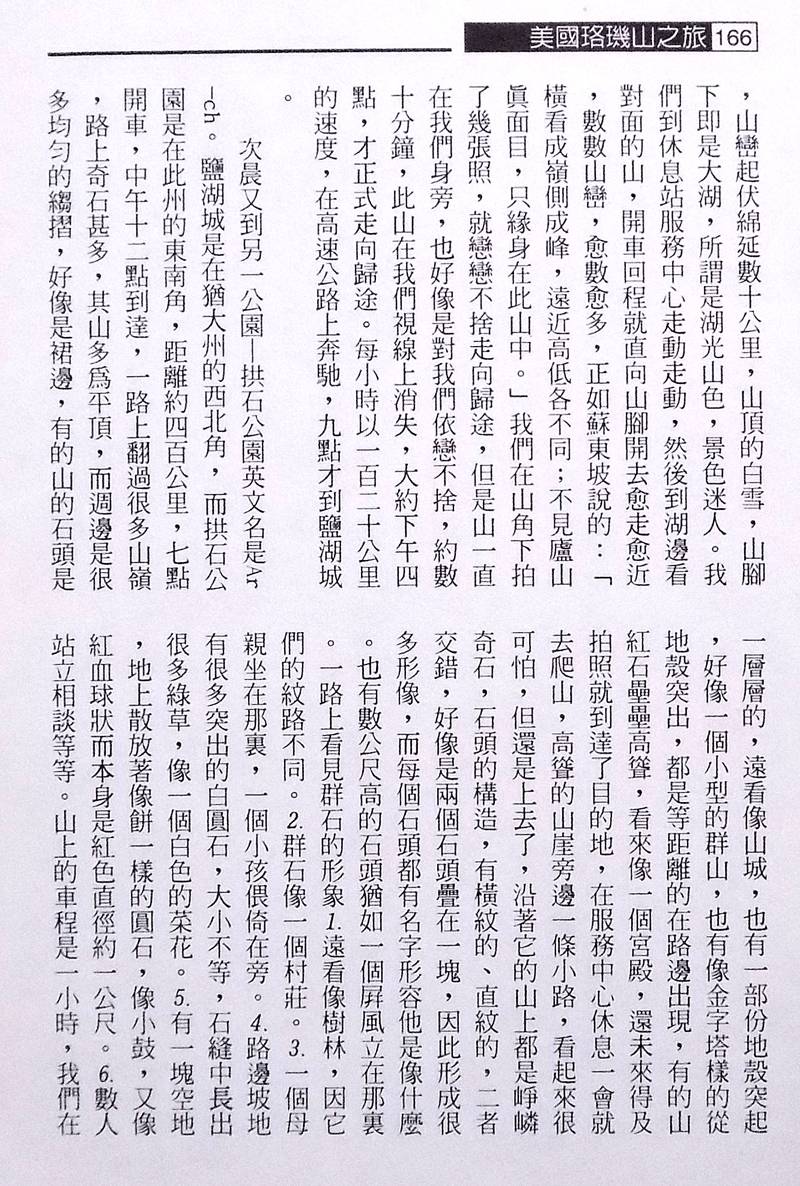 美國珞璣山之旅 166
，山巒起伏綿延數十公里，山頂的白雪，山腳
下即是大湖，所謂是湖光山色，景色迷人。我
們到休息站服務中心走動走動，然後到湖邊看
對面的山，開車回程就直向山腳開去愈走愈近
，數數山巒，愈數愈多，正如蘇東坡說的：「
橫看成嶺側成峰，遠近高低各不同；不見廬山
眞面目，只緣身在此山中。」我們在山角下拍
了幾張照，就戀戀不捨走向歸途，但是山一直
在我們身旁，也好像是對我們依戀不捨，約數
十分鐘，此山在我們視線上消失，大約下午四
點，才正式走向歸途。每小時以一百二十公里
的速度，在高速公路上奔馳，九點才到鹽湖城
。
次晨又到另一公園—拱石公園英文名是Ar
-ch。鹽湖城是在猶大州的西北角，而拱石公
園是在此州的東南角，距離約四百公里，七點
開車，中午十二點到達，一路上翻過很多山嶺
，路上奇石甚多，其山多爲平頂，而週邊是很
多均勻的縐摺，好像是裙邊，有的山的石頭是
一層層的，遠看像山城，也有一部份地殼突起
，好像一個小型的群山，也有像金字塔樣的從
地殼突出，都是等距離的在路邊出現，有的山
紅石壘壘高聳，看來像一個宮殿，還未來得及
拍照就到達了目的地，在服務中心休息一會就
去爬山，高聳的山崖旁邊一條小路，看起來很
可怕，但還是上去了，沿著它的山上都是崢嶙
奇石，石頭的構造，有橫紋的、直紋的，二者
交錯，好像是兩個石頭疊在一塊，因此形成很
多形像，而每個石頭都有名字形容他是像什麼
。也有數公尺高的石頭猶如一個屏風立在那裏
。一路上看見群石的形象1.遠看像樹林，因它
們的紋路不同。2.群石像一個村莊。3.一個母
親坐在那裏，一個小孩偎倚在旁。4.路邊坡地
有很多突出的白圓石，大小不等，石縫中長出
很多綠草，像一個白色的菜花。5.有一塊空地
，地上散放著像餅一樣的圓石，像小鼓，又像
紅血球狀而本身是紅色直徑約一公尺。6.數人
站立相談等等。山上的車程是一小時，我們在